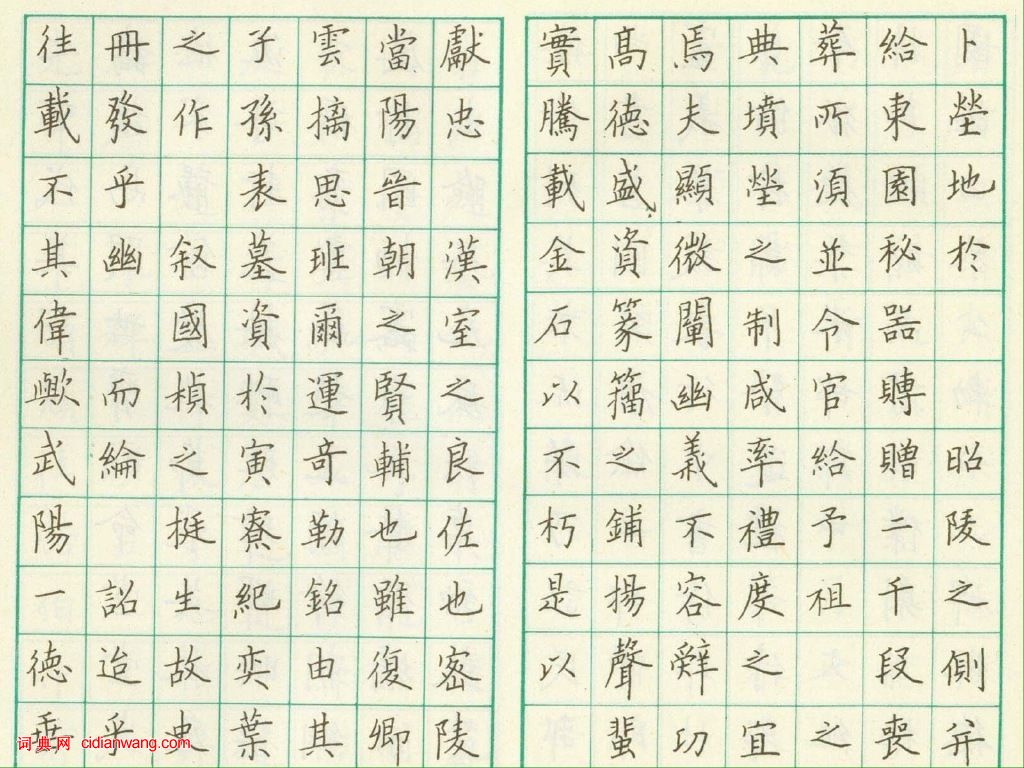 卜塋地於昭陵之側并
給東園秘器賻贈二千段喪
葬所須並令官給予祖之
典墳塋之制咸率禮度之宜
焉夫顯微闡幽義不容辤功
高德盛資篆籀之鋪揚聲蜚
實騰載金石以不朽是以
獻忠漢室之良佐也密陵
當陽晉朝之賢輔也雖復卿
雲摛思班爾運奇勒銘由其
子孫表墓資於寅寮紀奕葉
之作叙國楨之挺生故史
冊發乎幽而綸詔迨乎
往載不其偉歟武陽一德垂
词典网 cidianwang.com